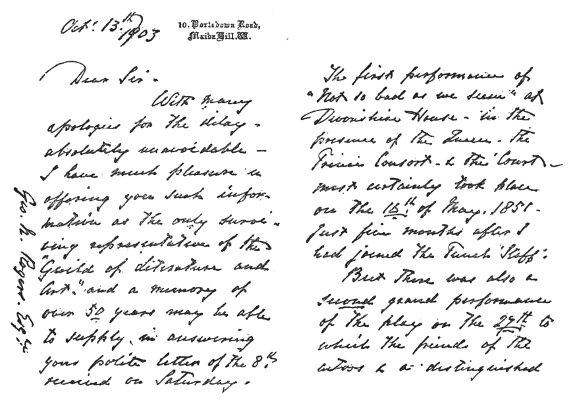 Oct: 13.th 1903
10. Portsdown Road,
Maida Hill. W.
Dear Sir -
With many
apologies for the delay -
absolutely unavoidable -
I have much pleasure in
offering you such infor-
mation as the only survi-
ving representative of the
"Guild of Literature and
Art" and a memory of
over 50 years may be able
to supply, in answering
your polite letter of the 8th
received on Saturday.
Geo. A. Rogers Esqre
The first performance of
"Not so bad as we seem" at
Devonshire House - in the
presence of the Queen - the
Prince Consort - & the Court -
most certainly took place
on the 16th of May. 1851 -
Just five months after I
had joined the Punch Staff.
But there was also a
second grand performance
of the play on the 27th to
which the friends of the
actors & a distinguished